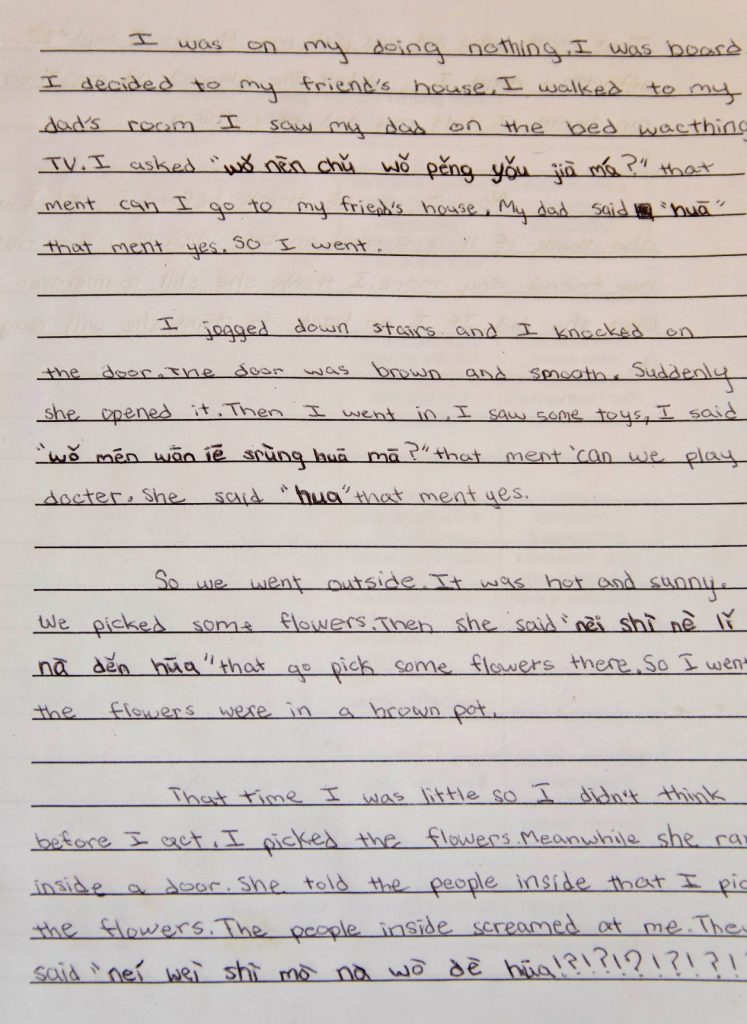 I was on my doing nothing. I was board
I decided to my friend's house. I walked to my
dad's room I saw my dad on the bed wacthing
TV. I asked "wǒ nēn chǔ wǒ pěng yǒu jiā má?" that
ment can I go to my friend's house. My dad said "huā"
that ment yes. So I went.
I jogged down stairs and I knocked on
the door. The door was brown and smooth. Suddenly
she opened it. Then I went in. I saw some toys, I said
"wǒ mēn wān iē srùng huā mā?" that ment 'can we play
docter. She said "hua" that ment yes.
So we went outside. It was hot and sunny.
We picked some flowers. Then she said "nēi shì nè lǐ
nà děn hūa" that go pick some flowers there. So I went
the flowers were in a brown pot.
That time I was little so I didn't think
before I act. I picked the flowers. Meanwhile she ran
inside a door. She told the people inside that I pic
the flowers. The people inside screamed at me. The
said "neí weì shì mò nà wò dè hūa!?!?!?!?!?!?